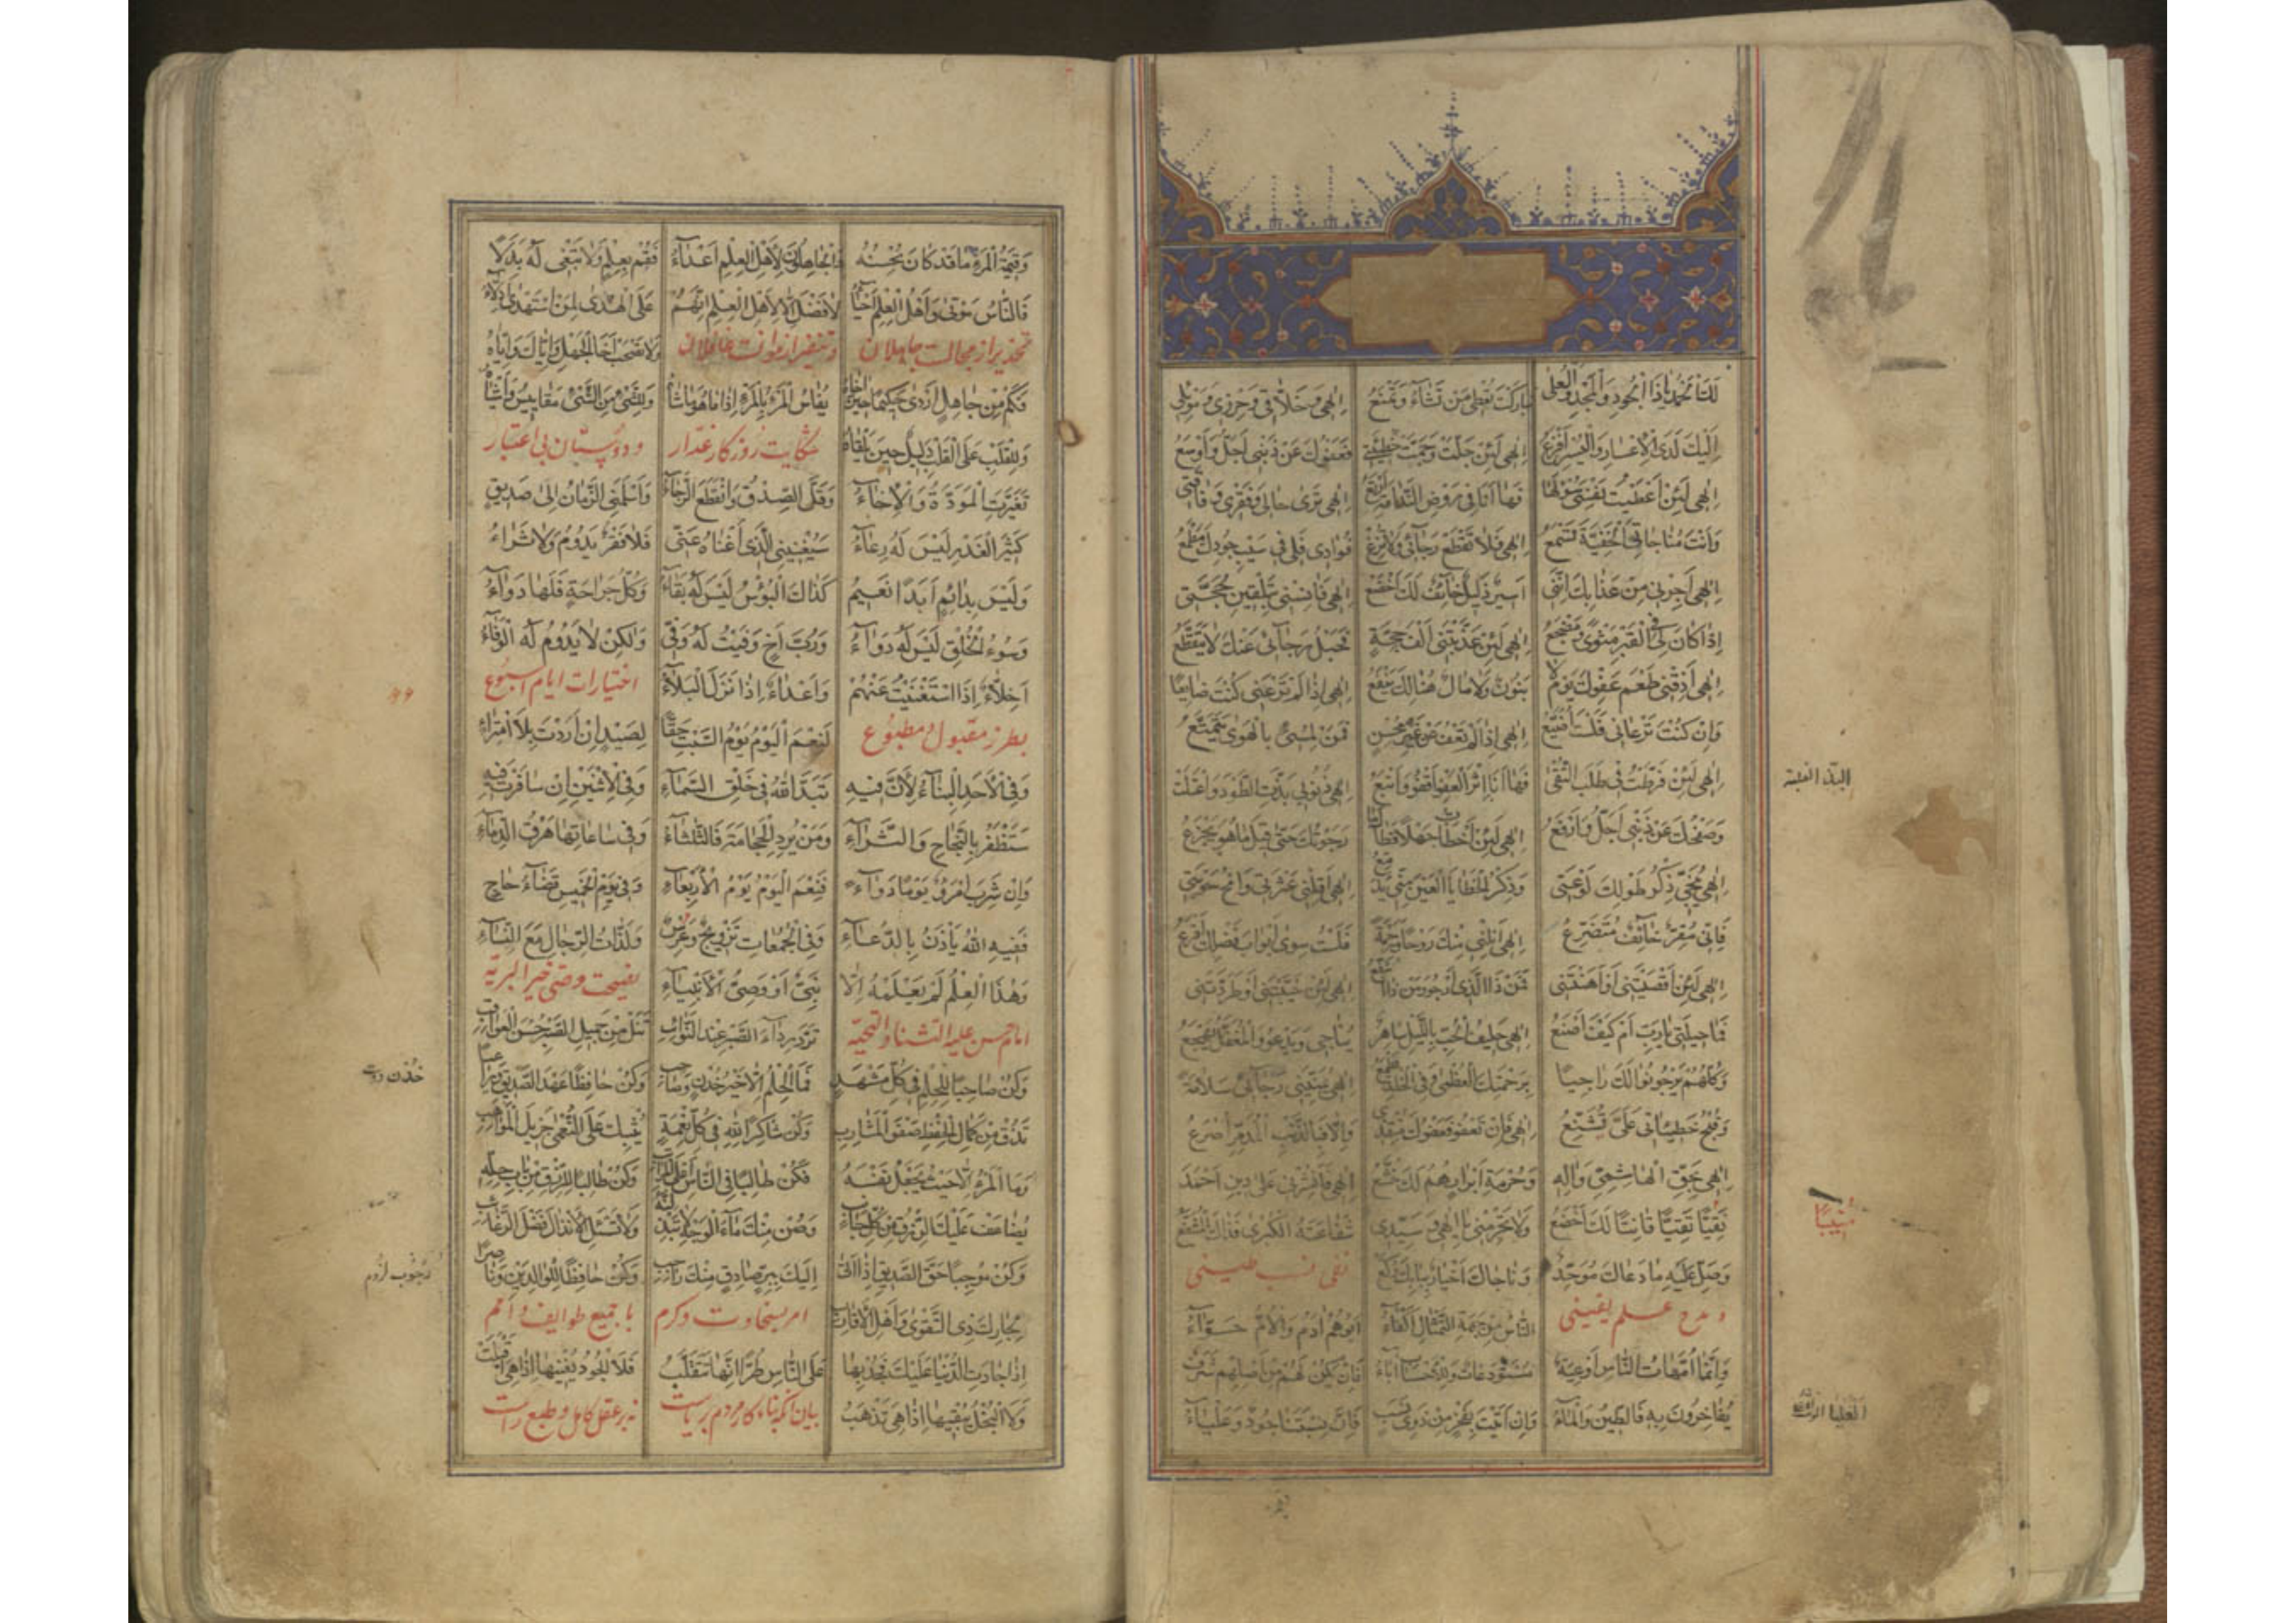 لَكَ الْحَمْدُ يَا ذَا الْجُودِ وَالْمَجْدِ وَالْعُلَى تَبَارَكْتَ تُعْطِى مَنْ تَشَاءُ وَتَمْنَعُ اِلٰهِى وَخَلَّاقِى وَحِرْزِى وَمَوْئِلِى
اِلَيْكَ لَدَى الْاِعْسَارِ وَالْيُسْرِ اَفْزَعُ اِلٰهِى لَئِنْ جَلَّتْ وَجَمَّتْ خَطِيئَتِى فَعَفْوُكَ عَنْ ذَنْبِى اَجَلُّ وَاَوْسَعُ
اِلٰهِى لَئِنْ اَعْطَيْتُ نَفْسِى سُؤْلَهَا فَهَا اَنَا فِى رَوْضِ النَّدَامَةِ اَرْتَعُ اِلٰهِى تَرَى حَالِى وَفَقْرِى وَفَاقَتِى
وَاَنْتَ مُنَاجَاتِى الْخَفِيَّةَ تَسْمَعُ اِلٰهِى فَلَا تَقْطَعْ رَجَائِى وَلَا تُزِغْ فُؤَادِى فَلِى فِى سَيْبِ جُودِكَ مَطْمَعُ
اِلٰهِى اَجِرْنِى مِنْ عَذَابِكَ اِنَّنِى اَسِيرٌ ذَلِيلٌ خَائِفٌ لَكَ اَخْضَعُ اِلٰهِى فَآنِسْنِى بِتَلْقِينِ حُجَّتِى
اِذَا كَانَ لِى فِى الْقَبْرِ مَثْوًى وَمَضْجَعُ اِلٰهِى لَئِنْ عَذَّبْتَنِى اَلْفَ حِجَّةٍ فَحَبْلُ رَجَائِى عَنْكَ لَا يَتَقَطَّعُ
اِلٰهِى اَذِقْنِى طَعْمَ عَفْوِكَ يَوْمَ لَا بَنُونَ وَلَا مَالٌ هُنَالِكَ يَنْفَعُ اِلٰهِى اِذَا لَمْ تَرْعَنِى كُنْتُ ضَايِعًا
وَاِنْ كُنْتَ تَرْعَانِى فَلَسْتُ اُضَيَّعُ اِلٰهِى اِذَا لَمْ تَعْفُ عَنْ غَيْرِ مُحْسِنٍ فَمَنْ لِمُسِىءٍ بِالْهَوَى يَتَمَتَّعُ
اِلٰهِى لَئِنْ فَرَّطْتُ فِى طَلَبِ التُّقَى فَهَا اَنَا اِثْرَ الْعَفْوِ اَقْفُو وَاَتْبَعُ اِلٰهِى ذُنُوبِى بَذَّتِ الطَّوْدَ وَاعْتَلَتْ
وَصَفْحُكَ عَنْ ذَنْبِى اَجَلُّ وَاَرْفَعُ اِلٰهِى لَئِنْ اَخْطَأْتُ جَهْلًا فَطَالَمَا رَجَوْتُكَ حَتَّى قِيلَ مَا هُوَ يَجْزَعُ
اِلٰهِى يُنَجِّى ذِكْرُ طَوْلِكَ لَوْعَتِى وَذِكْرُ الْخَطَايَا الْعَيْنَ مِنِّى يُدَمِّعُ اِلٰهِى اَقِلْنِى عَثْرَتِى وَامْحُ حَوْبَتِى
فَاِنِّى مُقِرٌّ خَائِفٌ مُتَضَرِّعُ اِلٰهِى اَنِلْنِى مِنْكَ رَوْحًا وَرَحْمَةً فَلَسْتُ سِوَى اَبْوَابِ فَضْلِكَ اَقْرَعُ
اِلٰهِى لَئِنْ اَقْصَيْتَنِى اَوْ اَهَنْتَنِى فَمَنْ ذَا الَّذِى اَرْجُو وَمَنْ ذَا يُشَفَّعُ اِلٰهِى لَئِنْ خَيَّبْتَنِى اَوْ طَرَدْتَنِى
فَمَا حِيلَتِى يَا رَبِّ اَمْ كَيْفَ اَصْنَعُ اِلٰهِى حَلِيفُ الْحُبِّ بِاللَّيْلِ سَاهِرٌ يُنَاجِى وَيَدْعُو وَالْمُغَفَّلُ يَهْجَعُ
وَكُلُّهُمْ يَرْجُو نَوَالَكَ رَاجِيًا بِرَحْمَتِكَ الْعُظْمَى وَفِى الْخُلْدِ يَطْمَعُ اِلٰهِى يُمَنِّينِى رَجَائِى سَلَامَةً
وَقُبْحُ خَطِيئَاتِى عَلَىَّ تُشَنِّعُ اِلٰهِى فَاِنْ تَعْفُو فَعَفْوُكَ مُنْقِذِى وَاِلَّا فَبِالذَّنْبِ الْمُدَمِّرِ اُصْرَعُ
اِلٰهِى بِحَقِّ الْهَاشِمِىِّ وَاٰلِهِ وَحُرْمَةِ اَبْرَارِهِمْ لَكَ خُشَّعُ اِلٰهِى فَانْشُرْنِى عَلَى دِينِ اَحْمَدَ
تَقِيًّا نَقِيًّا قَانِتًا لَكَ اَخْضَعُ وَلَا تَحْرِمَنِّى يَا اِلٰهِى وَسَيِّدِى شَفَاعَتَهُ الْكُبْرَى فَذَاكَ الْمُشَفَّعُ
وَصَلِّ عَلَيْهِ مَا دَعَاكَ مُوَحِّدٌ وَنَاجَاكَ اَخْيَارٌ بِبَابِكَ رُكَّعُ نفى نسب طينى
و مدح علم يقينى اَلنَّاسُ مِنْ جِهَةِ التِّمْثَالِ اَكْفَاءُ اَبُوهُمُ اٰدَمُ وَالْاُمُّ حَوَّاءُ
وَاِنَّمَا اُمَّهَاتُ النَّاسِ اَوْعِيَةٌ مُسْتَوْدَعَاتٌ وَلِلْاَحْسَابِ اٰبَاءُ فَاِنْ يَكُنْ لَهُمْ مِنْ اَصْلِهِمْ شَرَفٌ
يُفَاخِرُونَ بِهِ فَالطِّينُ وَالْمَاءُ وَاِنْ اَتَيْتَ بِفَخْرٍ مِنْ ذَوِى نَسَبٍ فَاِنَّ نِسْبَتَنَا جُودٌ وَعَلْيَاءُ
مُنِيبًا
وَقِيمَةُ الْمَرْءِ مَا قَدْ كَانَ يُحْسِنُهُ وَالْجَاهِلُونَ لِاَهْلِ الْعِلْمِ اَعْدَاءُ فَقُمْ بِعِلْمٍ وَلَا تَبْغِى لَهُ بَدَلًا
فَالنَّاسُ مَوْتَى وَاَهْلُ الْعِلْمِ اَحْيَاءُ لَا فَضْلَ اِلَّا لِاَهْلِ الْعِلْمِ اِنَّهُمُ عَلَى الْهُدَى لِمَنِ اسْتَهْدَى اَدِلَّاءُ
تحذير از مجالست جاهلان و تنفير از موانست غافلان وَلَا تَصْحَبْ اَخَا الْجَهْلِ وَاِيَّاكَ وَاِيَّاهُ
فَكَمْ مِنْ جَاهِلٍ اَرْدَى حَكِيمًا حِينَ اٰخَاهُ يُقَاسُ الْمَرْءُ بِالْمَرْءِ اِذَا مَا هُوَ مَاشَاهُ وَلِلشَّىْءِ مِنَ الشَّىْءِ مَقَايِيسُ وَاَشْبَاهُ
وَلِلْقَلْبِ عَلَى الْقَلْبِ دَلِيلٌ حِينَ يَلْقَاهُ شكايت روزكار غدار و دوستان بى اعتبار
تَغَيَّرَتِ الْمَوَدَّةُ وَالْاِخَاءُ وَقَلَّ الصِّدْقُ وَانْقَطَعَ الرَّجَاءُ وَاَسْلَمَنِى الزَّمَانُ اِلَى صَدِيقٍ
كَثِيرِ الْغَدْرِ لَيْسَ لَهُ رِعَاءُ سَيُغْنِينِى الَّذِى اَغْنَاهُ عَنِّى فَلَا فَقْرٌ يَدُومُ وَلَا ثَرَاءُ
وَلَيْسَ بِدَائِمٍ اَبَدًا نَعِيمٌ كَذَاكَ الْبُؤْسُ لَيْسَ لَهُ بَقَاءُ وَكُلُّ جِرَاحَةٍ فَلَهَا دَوَاءُ
وَسُوءُ الْخُلْقِ لَيْسَ لَهُ دَوَاءُ وَرُبَّ اَخٍ وَفَيْتُ لَهُ وَفِىٍّ وَلٰكِنْ لَا يَدُومُ لَهُ الْوَفَاءُ
اَخِلَّاءٌ اِذَا اسْتَغْنَيْتُ عَنْهُمْ وَاَعْدَاءٌ اِذَا نَزَلَ الْبَلَاءُ اختيارات ايام اسبوع
بطرز مقبول و مطبوع لَنِعْمَ الْيَوْمُ يَوْمُ السَّبْتِ حَقًّا لِصَيْدٍ اِنْ اَرَدْتَ بِلَا امْتِرَاءِ
وَفِى الْاَحَدِ الْبِنَاءُ لِاَنَّ فِيهِ تَبَدَّى اللّٰهُ فِى خَلْقِ السَّمَاءِ وَفِى الْاِثْنَيْنِ اِنْ سَافَرْتَ فِيهِ
سَتَظْفَرُ بِالنَّجَاحِ وَالثَّرَاءِ وَمَنْ يُرِدِ الْحِجَامَةَ فَالثُّلَثَاءُ وَفِى سَاعَاتِهَا هَرْقُ الدِّمَاءِ
وَاِنْ شَرِبَ امْرُؤٌ يَوْمًا دَوَاءً فَنِعْمَ الْيَوْمُ يَوْمُ الْاَرْبِعَاءِ وَفِى يَوْمِ الْخَمِيسِ قَضَاءُ حَاجٍ
فَفِيهِ اللّٰهُ يَأْذَنُ بِالدُّعَاءِ وَفِى الْجُمُعَاتِ تَزْوِيجٌ وَعُرْسٌ وَلَذَّاتُ الرِّجَالِ مَعَ النِّسَاءِ
وَهٰذَا الْعِلْمُ لَمْ يَعْلَمْهُ اِلَّا نَبِىٌّ اَوْ وَصِىُّ الْاَنْبِيَاءِ نصيحت وصى خير البرية
امام حسن عليه الثناء والتحية تَرَدَّ رِدَاءَ الصَّبْرِ عِنْدَ النَّوَائِبِ تَنَلْ مِنْ جَمِيلِ الصَّبْرِ حُسْنَ الْعَوَاقِبِ
وَكُنْ صَاحِبًا لِلْحِلْمِ فِى كُلِّ مَشْهَدٍ فَمَا الْحِلْمُ اِلَّا خَيْرُ خِدْنٍ وَصَاحِبِ وَكُنْ حَافِظًا عَهْدَ الصَّدِيقِ وَرَاعِيًا
تَذُقْ مِنْ كَمَالِ الْحِفْظِ صَفْوَ الْمَشَارِبِ وَكُنْ شَاكِرًا لِلّٰهِ فِى كُلِّ نِعْمَةٍ يُثِبْكَ عَلَى النُّعْمَى جَزِيلَ الْمَوَاهِبِ
وَمَا الْمَرْءُ اِلَّا حَيْثُ يَجْعَلُ نَفْسَهُ فَكُنْ طَالِبًا فِى النَّاسِ اَعْلَى الْمَرَاتِبِ وَكُنْ طَالِبًا لِلرِّزْقِ مِنْ بَابِ حِلِّهِ
يُضَاعَفْ عَلَيْكَ الرِّزْقُ مِنْ كُلِّ جَانِبِ وَصُنْ مِنْكَ مَاءَ الْوَجْهِ لَا تَبْذُلَنَّهُ وَلَا تَسْئَلِ الْاَنْذَالَ فَضْلَ الرَّغَائِبِ
وَكُنْ مُوجِبًا حَقَّ الصَّدِيقِ اِذَا اَتَى اِلَيْكَ بِبِرٍّ صَادِقٍ مِنْكَ وَاجِبِ وَكُنْ حَافِظًا لِلْوَالِدَيْنِ وَنَاصِرًا
لِجَارِكَ ذِى التَّقْوَى وَاَهْلِ الْاَقَارِبِ امر بسخاوت و كرم با جميع طوايف و امم
اِذَا جَادَتِ الدُّنْيَا عَلَيْكَ فَجُدْ بِهَا عَلَى النَّاسِ طُرًّا اِنَّهَا تَتَقَلَّبُ فَلَا الْجُودُ يُفْنِيهَا اِذَا هِىَ اَقْبَلَتْ
وَلَا الْبُخْلُ يُبْقِيهَا اِذَا هِىَ تَذْهَبُ بيان آنكه بناء كار مردم بر ياست نه بر عقل كامل و طبع راست
خدن دوست
وجوب لزوم